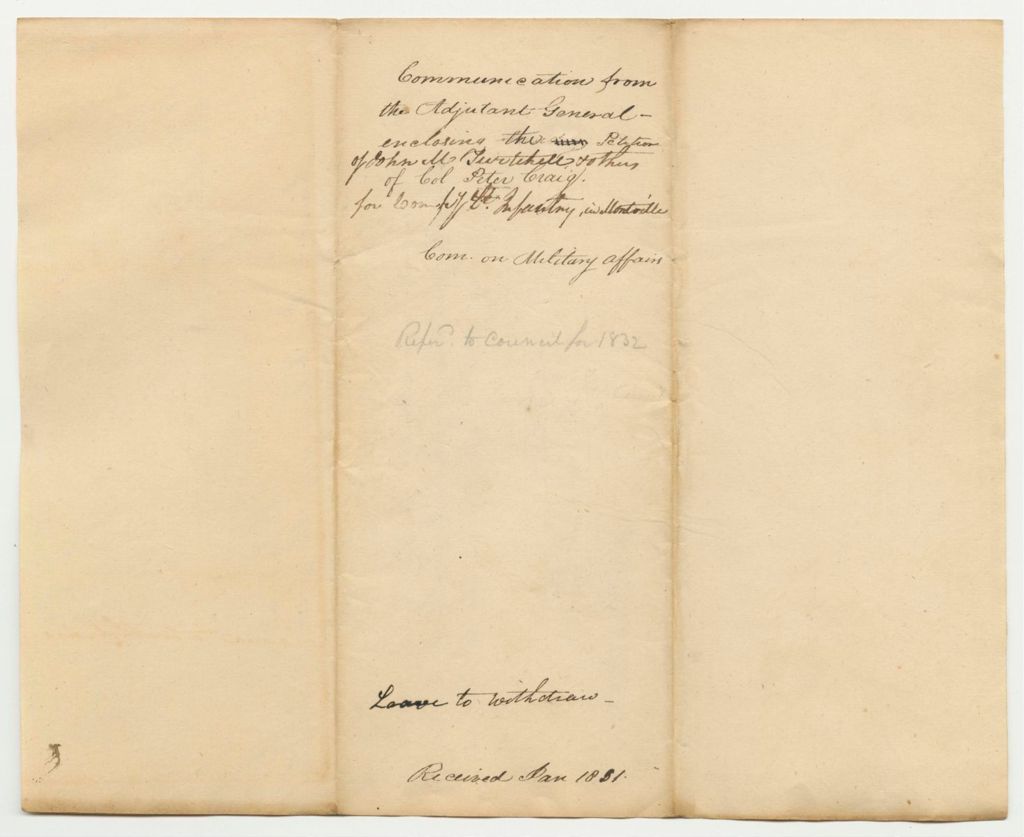 Communication from
the Adjutant General -
enclosing the Petition
of John M Twitchell & others
of Col Peter Craig.
for Comy of Lt. Infantry, in Montville
Com. on Military affairs
Refer'd. to Council for 1832
Leave to withdraw -
Received Jan 1831.